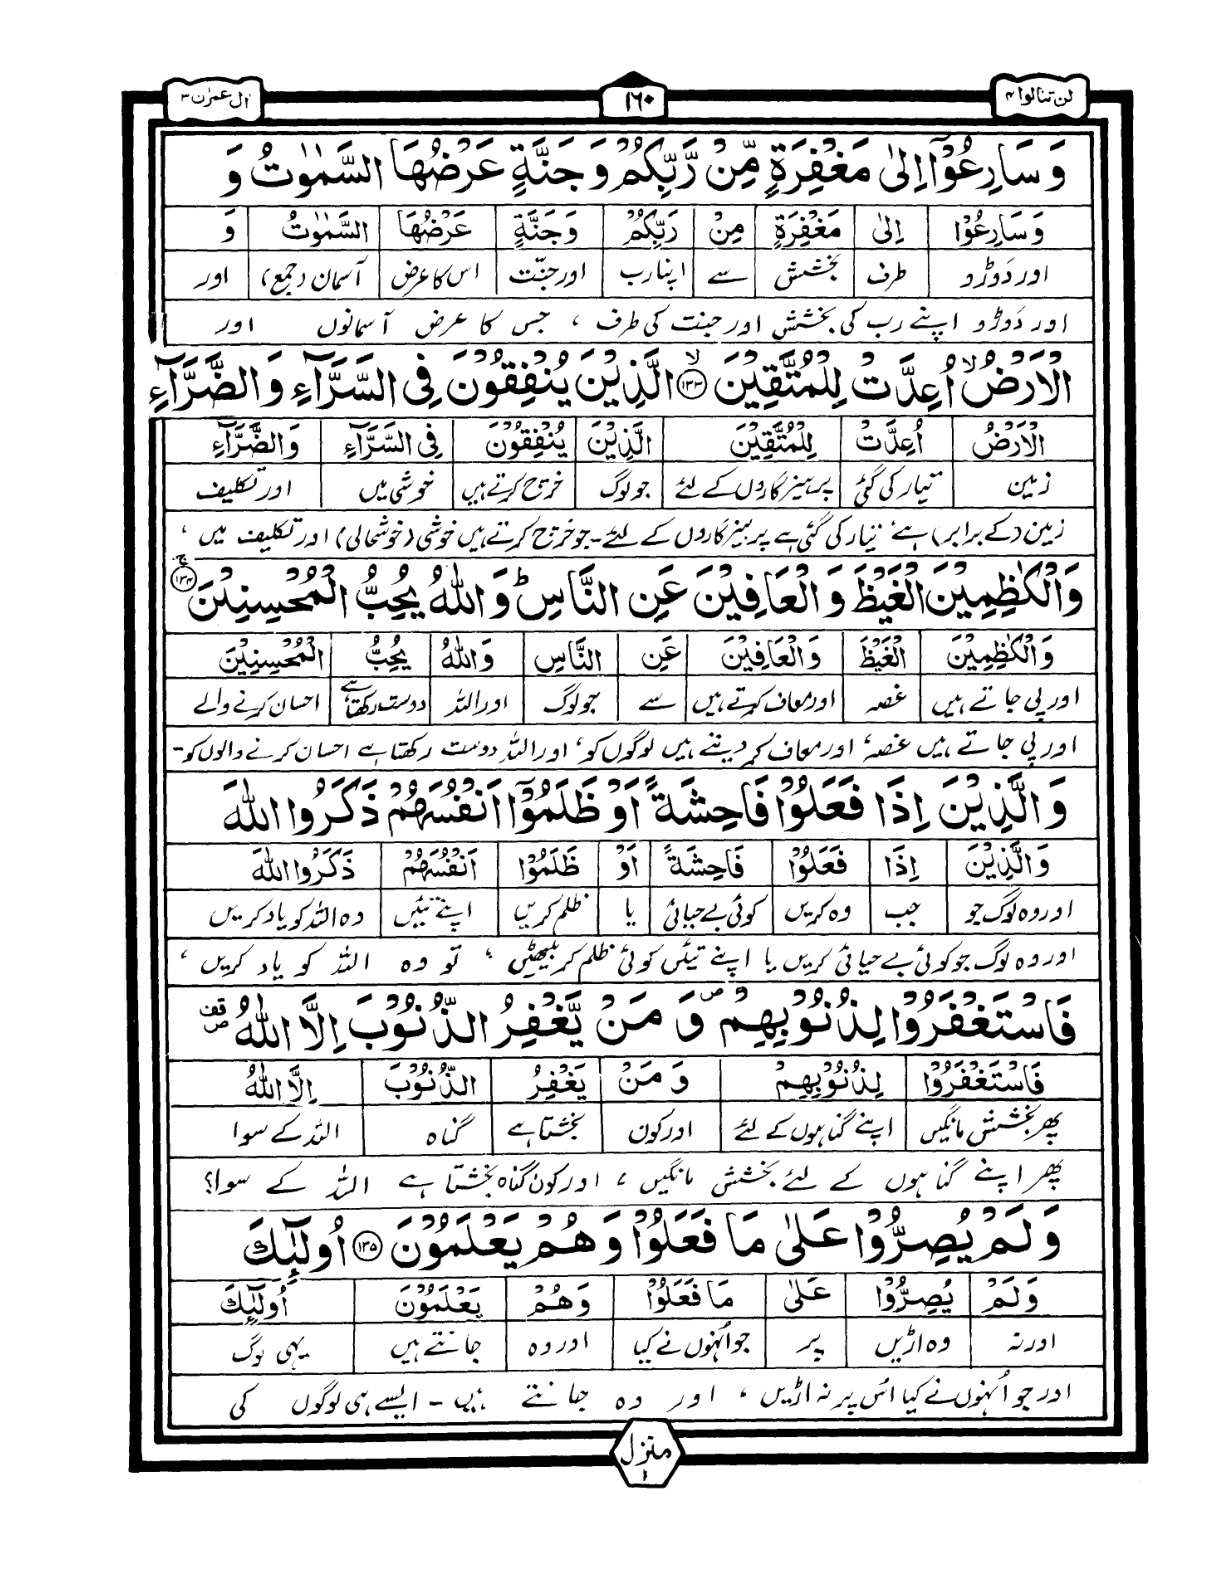 لن تنالوا ۴
۱۶۰
اٰل عمرٰن ۳
وَ سَارِعُوْۤا اِلٰى مَغْفِرَةٍ مِّنْ رَّبِّكُمْ وَ جَنَّةٍ عَرْضُهَا السَّمٰوٰتُ وَ
وَ سَارِعُوْا اِلٰى مَغْفِرَةٍ مِنْ رَبِّكُمْ وَ جَنَّةٍ عَرْضُهَا السَّمٰوٰتُ وَ
اور دَوڑو طرف بخشش سے اپنا رب اور جنّت اس کا عرض آسمان (جمع) اور
اور دَوڑو اپنے رب کی بخشش اور جنت کی طرف ، جس کا عرض آسمانوں اور
الْاَرْضُ ۙ اُعِدَّتْ لِلْمُتَّقِيْنَ ۙ﴿۱۳۳﴾ الَّذِيْنَ يُنْفِقُوْنَ فِى السَّرَّآءِ وَ الضَّرَّآءِ
الْاَرْضُ اُعِدَّتْ لِلْمُتَّقِيْنَ الَّذِيْنَ يُنْفِقُوْنَ فِى السَّرَّآءِ وَ الضَّرَّآءِ
زمین تیار کی گئی پرہیزگاروں کے لئے جو لوگ خرچ کرتے ہیں خوشی میں اور تکلیف
زمین (کے برابر) ہے ، تیار کی گئی ہے پرہیزگاروں کے لئے ۔ جو خرچ کرتے ہیں خوشی (خوشحالی) اور تکلیف میں ،
وَ الْكٰظِمِيْنَ الْغَيْظَ وَ الْعَافِيْنَ عَنِ النَّاسِ ؕ وَ اللّٰهُ يُحِبُّ الْمُحْسِنِيْنَ ۚ﴿۱۳۴﴾
وَ الْكٰظِمِيْنَ الْغَيْظَ وَ الْعَافِيْنَ عَنِ النَّاسِ وَ اللّٰهُ يُحِبُّ الْمُحْسِنِيْنَ
اور پی جاتے ہیں غصہ اور معاف کرتے ہیں سے جو لوگ اور اللہ دوست رکھتا ہے احسان کرنے والے
اور پی جاتے ہیں غصہ ، اور معاف کر دیتے ہیں لوگوں کو ، اور اللہ دوست رکھتا ہے احسان کرنے والوں کو ۔
وَ الَّذِيْنَ اِذَا فَعَلُوْا فَاحِشَةً اَوْ ظَلَمُوْۤا اَنْفُسَهُمْ ذَكَرُوا اللّٰهَ
وَ الَّذِيْنَ اِذَا فَعَلُوْا فَاحِشَةً اَوْ ظَلَمُوْا اَنْفُسَهُمْ ذَكَرُوا اللّٰهَ
اور وہ لوگ جو جب وہ کریں کوئی بے حیائی یا ظلم کریں اپنے تئیں وہ اللہ کو یاد کریں
اور وہ لوگ جو کوئی بے حیائی کریں یا اپنے تئیں کوئی ظلم کر بیٹھیں ، تو وہ اللہ کو یاد کریں ،
فَاسْتَغْفَرُوْا لِذُنُوْبِهِمْ ۪ وَ مَنْ يَّغْفِرُ الذُّنُوْبَ اِلَّا اللّٰهُ ۪۫
فَاسْتَغْفَرُوْا لِذُنُوْبِهِمْ وَ مَنْ يَغْفِرُ الذُّنُوْبَ اِلَّا اللّٰهُ
پھر بخشش مانگیں اپنے گناہوں کے لئے اور کون بخشتا ہے گناہ اللہ کے سوا
پھر اپنے گناہوں کے لئے بخشش مانگیں ، اور کون گناہ بخشتا ہے اللہ کے سوا؟
وَ لَمْ يُصِرُّوْا عَلٰى مَا فَعَلُوْا وَ هُمْ يَعْلَمُوْنَ ﴿۱۳۵﴾ اُولٰٓئِكَ
وَ لَمْ يُصِرُّوْا عَلٰى مَا فَعَلُوْا وَ هُمْ يَعْلَمُوْنَ اُولٰٓئِكَ
اور نہ وہ اڑیں پر جو اُنہوں نے کیا اور وہ جانتے ہیں یہی لوگ
اور جو اُنہوں نے کیا اُس پر نہ اڑیں ، اور وہ جانتے ہیں ۔ ایسے ہی لوگوں کی
منزل ۱